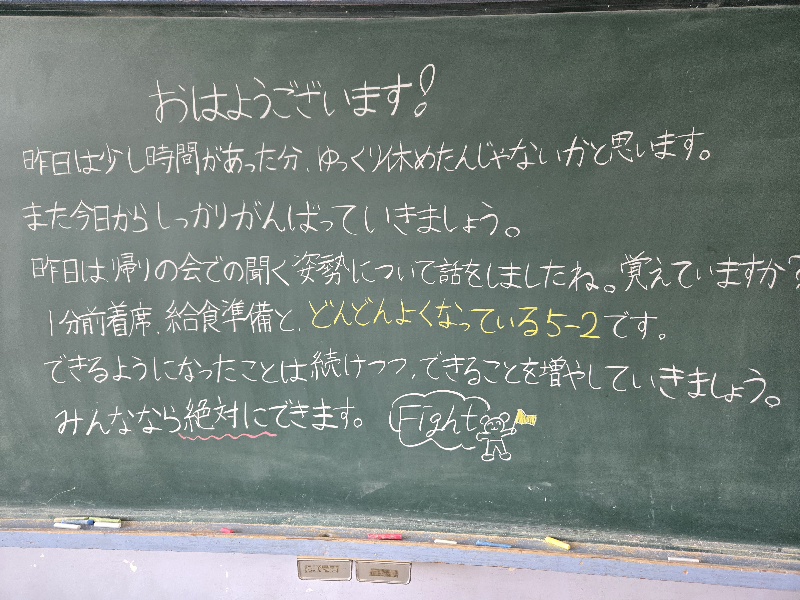 おはようございます!
昨日は少し時間があった分、ゆっくり休めたんじゃないかと思います。
また今日からしっかりがんばっていきましょう。
昨日は帰りの会での聞く姿勢について話をしましたね。覚えていますか?
1分前着席、給食準備と、どんどんよくなっている5-2です。
できるようになったことは続けつつ、できることを増やしていきましょう。
みんななら絶対にできます。 Fight